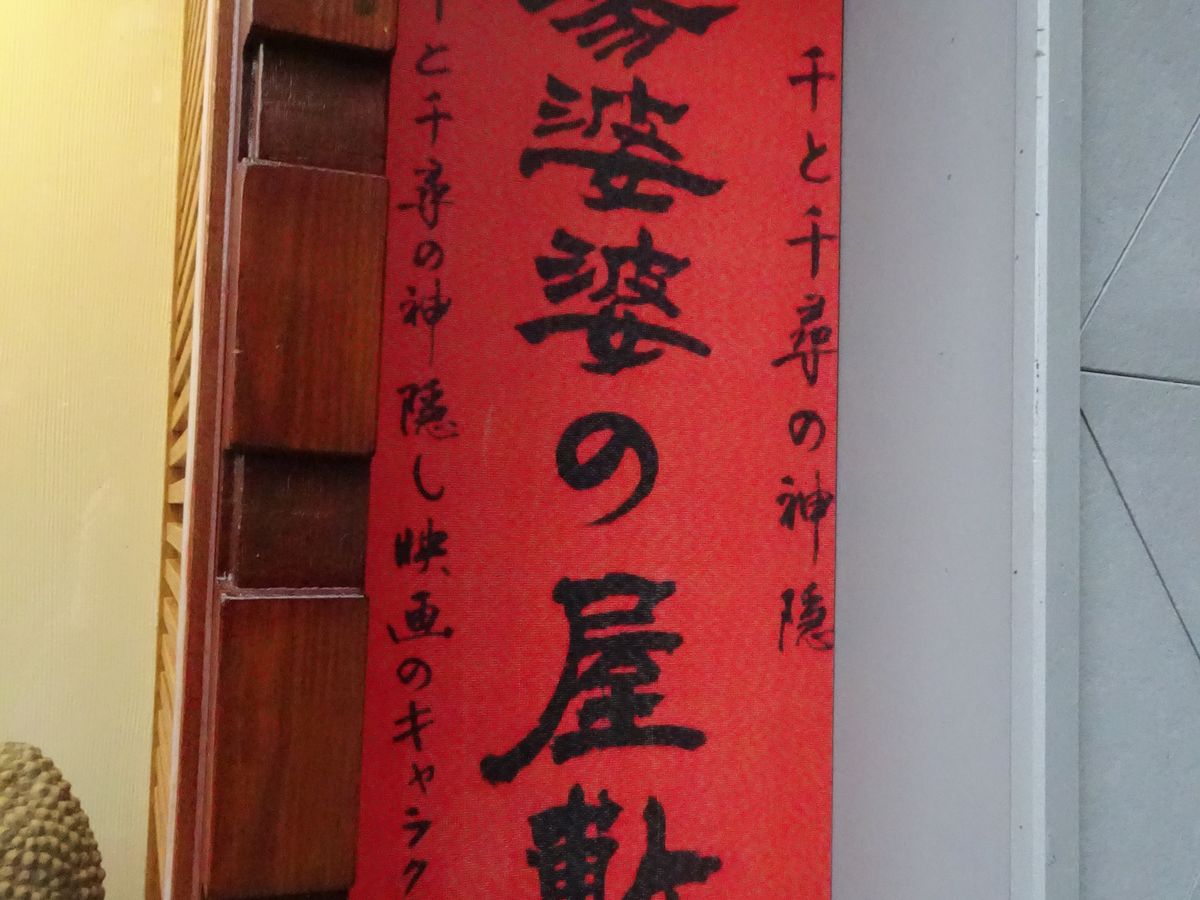 千と千尋の神隠
湯婆婆の屋敷
千と千尋の神隠し映画のキャラク